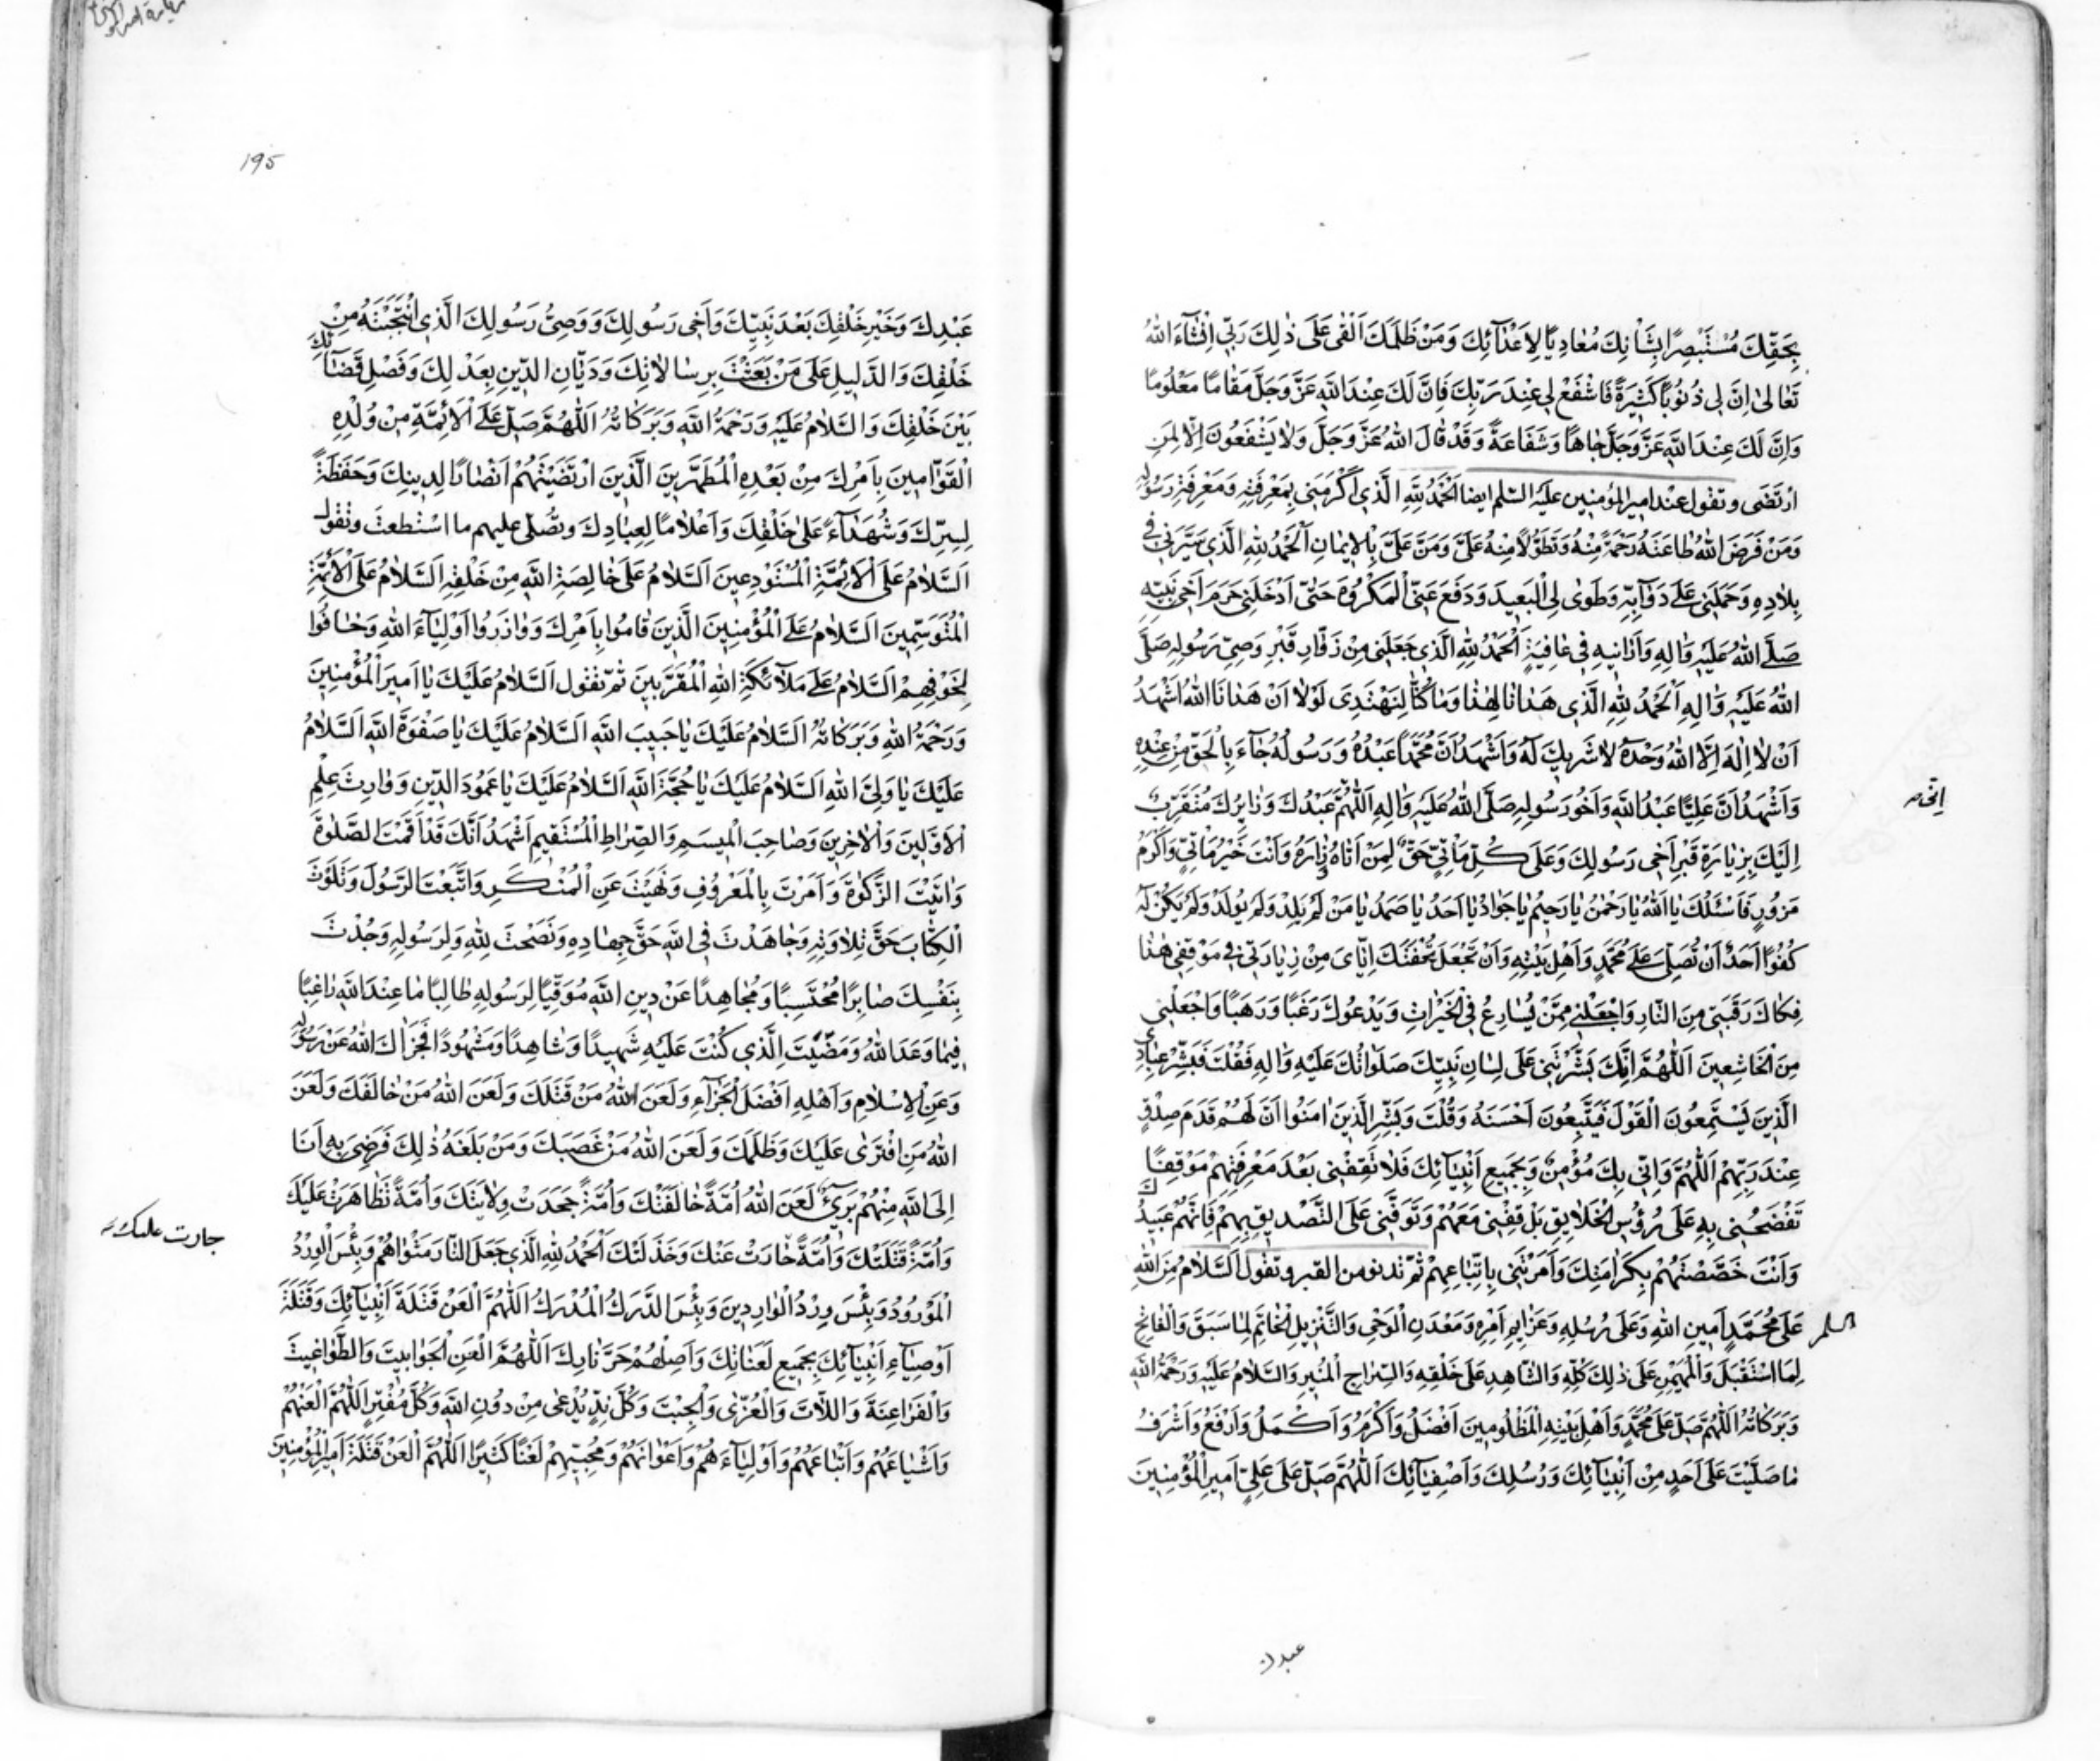 بِحَقِّكَ مُسْتَبْصِرًا بِشَأْنِكَ مُعَادِيًا لِأَعْدَائِكَ وَمَنْ ظَلَمَكَ اَلْقَى عَلَى ذٰلِكَ رَبِّي اِنْشَآءَ اللهُ
تَعَالىٰ اِنَّ لِي ذُنُوبًا كَثِيرَةً فَاشْفَعْ لِي عِنْدَ رَبِّكَ فَاِنَّ لَكَ عِنْدَ اللهِ عَزَّ وَجَلَّ مَقَامًا مَعْلُومًا
وَاِنَّ لَكَ عِنْدَ اللهِ عَزَّ وَجَلَّ جَاهًا وَشَفَاعَةً وَقَدْ قَالَ اللهُ عَزَّ وَجَلَّ وَلَا يَشْفَعُونَ اِلَّا لِمَنِ
ارْتَضَى وتقول عند امير المؤمنين عليه السلم ايضا اَلْحَمْدُ لِلّٰهِ الَّذِي اَكْرَمَنِي بِمَعْرِفَتِهِ وَمَعْرِفَةِ رَسُولِهِ
وَمَنْ فَرَضَ اللهُ طَاعَتَهُ رَحْمَةً مِنْهُ وَتَطَوُّلًا مِنْهُ عَلَيَّ وَمَنَّ عَلَيَّ بِالْاِيمَانِ اَلْحَمْدُ لِلّٰهِ الَّذِي سَيَّرَنِي فِي
بِلَادِهِ وَحَمَلَنِي عَلَى دَوَابِّهِ وَطَوَى لِيَ الْبَعِيدَ وَدَفَعَ عَنِّي الْمَكْرُوهَ حَتّٰى اَدْخَلَنِي حَرَمَ اَخِي نَبِيِّهِ
صَلَّى اللهُ عَلَيْهِ وَاٰلِهِ وَاَرَانِيهِ فِي عَافِيَةٍ اَلْحَمْدُ لِلّٰهِ الَّذِي جَعَلَنِي مِنْ زُوَّارِ قَبْرِ وَصِيِّ رَسُولِهِ صَلَّى
اللهُ عَلَيْهِ وَاٰلِهِ اَلْحَمْدُ لِلّٰهِ الَّذِي هَدَانَا لِهٰذَا وَمَا كُنَّا لِنَهْتَدِيَ لَوْلَا اَنْ هَدَانَا اللهُ اَشْهَدُ
اَنْ لَا اِلٰهَ اِلَّا اللهُ وَحْدَهُ لَا شَرِيكَ لَهُ وَاَشْهَدُ اَنَّ مُحَمَّدًا عَبْدُهُ وَرَسُولُهُ جَآءَ بِالْحَقِّ مِنْ عِنْدِهِ
وَاَشْهَدُ اَنَّ عَلِيًّا عَبْدُ اللهِ وَاَخُو رَسُولِهِ صَلَّى اللهُ عَلَيْهِ وَاٰلِهِ اَللّٰهُمَّ عَبْدُكَ وَزَائِرُكَ مُتَقَرِّبٌ
اِنّى
اِلَيْكَ بِزِيَارَةِ قَبْرِ اَخِي رَسُولِكَ وَعَلَى كُلِّ مَأْتِيٍّ حَقٌّ لِمَنْ اَتَاهُ وَزَارَهُ وَاَنْتَ خَيْرُ مَأْتِيٍّ وَاَكْرَمُ
مَزُورٍ فَاَسْئَلُكَ يَا اَللهُ يَا رَحْمٰنُ يَا رَحِيمُ يَا جَوَادُ يَا اَحَدُ يَا صَمَدُ يَا مَنْ لَمْ يَلِدْ وَلَمْ يُولَدْ وَلَمْ يَكُنْ لَهُ
كُفُوًا اَحَدٌ اَنْ تُصَلِّيَ عَلَى مُحَمَّدٍ وَاَهْلِ بَيْتِهِ وَاَنْ تَجْعَلَ تُحْفَتَكَ اِيَّايَ مِنْ زِيَارَتِي فِي مَوْقِفِي هٰذَا
فِكَاكَ رَقَبَتِي مِنَ النَّارِ وَاجْعَلْنِي مِمَّنْ يُسَارِعُ فِي الْخَيْرَاتِ وَيَدْعُوكَ رَغَبًا وَرَهَبًا وَاجْعَلْنِي
مِنَ الْخَاشِعِينَ اَللّٰهُمَّ اِنَّكَ بَشَّرْتَنِي عَلَى لِسَانِ نَبِيِّكَ صَلَوَاتُكَ عَلَيْهِ وَاٰلِهِ فَقُلْتَ فَبَشِّرْ عِبَادِي
الَّذِينَ يَسْتَمِعُونَ الْقَوْلَ فَيَتَّبِعُونَ اَحْسَنَهُ وَقُلْتَ وَبَشِّرِ الَّذِينَ اٰمَنُوا اَنَّ لَهُمْ قَدَمَ صِدْقٍ
عِنْدَ رَبِّهِمْ اَللّٰهُمَّ وَاِنِّي بِكَ مُؤْمِنٌ وَبِجَمِيعِ اَنْبِيَائِكَ فَلَا تَقِفْنِي بَعْدَ مَعْرِفَتِهِمْ مَوْقِفًا
تَفْضَحُنِي بِهِ عَلَى رُؤُسِ الْخَلَايِقِ بَلْ قِفْنِي مَعَهُمْ وَتَوَفَّنِي عَلَى التَّصْدِيقِ بِهِمْ فَاِنَّهُمْ عَبِيدُكَ
وَاَنْتَ خَصَّصْتَهُمْ بِكَرَامَتِكَ وَاَمَرْتَنِي بِاتِّبَاعِهِمْ ثم تدنو من القبر وتقول اَلسَّلَامُ مِنَ اللهِ
عَلَى مُحَمَّدٍ اَمِينِ اللهِ وَعَلَى رُسُلِهِ وَعَزَائِمِ اَمْرِهِ وَمَعْدَنِ الْوَحْيِ وَالتَّنْزِيلِ الْخَاتَمِ لِمَا سَبَقَ وَالْفَاتِحِ
لِمَا اسْتَقْبَلَ وَالْمُهَيْمِنِ عَلَى ذٰلِكَ كُلِّهِ وَالشَّاهِدِ عَلَى خَلْقِهِ وَالسِّرَاجِ الْمُنِيرِ وَالسَّلَامُ عَلَيْهِ وَرَحْمَةُ اللهِ
وَبَرَكَاتُهُ اَللّٰهُمَّ صَلِّ عَلَى مُحَمَّدٍ وَاَهْلِ بَيْتِهِ الْمَظْلُومِينَ اَفْضَلَ وَاَكْرَمَ وَاَكْمَلَ وَاَرْفَعَ وَاَشْرَفَ
مَا صَلَّيْتَ عَلَى اَحَدٍ مِنْ اَنْبِيَائِكَ وَرُسُلِكَ وَاَصْفِيَائِكَ اَللّٰهُمَّ صَلِّ عَلَى عَلِيٍّ اَمِيرِ الْمُؤْمِنِينَ
عبدك
١٩٥
عَبْدِكَ وَخَيْرِ خَلْقِكَ بَعْدَ نَبِيِّكَ وَاَخِي رَسُولِكَ وَوَصِيِّ رَسُولِكَ الَّذِي انْتَجَبْتَهُ مِنْ
خَلْقِكَ وَالدَّلِيلِ عَلَى مَنْ بَعَثْتَ بِرِسَالَاتِكَ وَدَيَّانِ الدِّينِ بِعَدْلِكَ وَفَصْلِ قَضَائِكَ
بَيْنَ خَلْقِكَ وَالسَّلَامُ عَلَيْهِ وَرَحْمَةُ اللهِ وَبَرَكَاتُهُ اَللّٰهُمَّ صَلِّ عَلَى الْاَئِمَّةِ مِنْ وُلْدِهِ
الْقَوَّامِينَ بِاَمْرِكَ مِنْ بَعْدِهِ الْمُطَهَّرِينَ الَّذِينَ ارْتَضَيْتَهُمْ اَنْصَارًا لِدِينِكَ وَحَفَظَةً
لِسِرِّكَ وَشُهَدَاءَ عَلَى خَلْقِكَ وَاَعْلَامًا لِعِبَادِكَ وتصلّى عليهم ما استطعت وتقول
اَلسَّلَامُ عَلَى الْاَئِمَّةِ الْمُسْتَوْدِعِينَ اَلسَّلَامُ عَلَى خَالِصَةِ اللهِ مِنْ خَلْقِهِ اَلسَّلَامُ عَلَى الْاَئِمَّةِ
الْمُتَوَسِّمِينَ اَلسَّلَامُ عَلَى الْمُؤْمِنِينَ الَّذِينَ قَامُوا بِاَمْرِكَ وَوَازَرُوا اَوْلِيَاءَ اللهِ وَخَافُوا
لِخَوْفِهِمْ اَلسَّلَامُ عَلَى مَلَائِكَةِ اللهِ الْمُقَرَّبِينَ ثم تقول اَلسَّلَامُ عَلَيْكَ يَا اَمِيرَ الْمُؤْمِنِينَ
وَرَحْمَةُ اللهِ وَبَرَكَاتُهُ اَلسَّلَامُ عَلَيْكَ يَا حَبِيبَ اللهِ اَلسَّلَامُ عَلَيْكَ يَا صَفْوَةَ اللهِ اَلسَّلَامُ
عَلَيْكَ يَا وَلِيَّ اللهِ اَلسَّلَامُ عَلَيْكَ يَا حُجَّةَ اللهِ اَلسَّلَامُ عَلَيْكَ يَا عَمُودَ الدِّينِ وَوَارِثَ عِلْمِ
الْاَوَّلِينَ وَالْاٰخِرِينَ وَصَاحِبَ الْمِيسَمِ وَالصِّرَاطِ الْمُسْتَقِيمِ اَشْهَدُ اَنَّكَ قَدْ اَقَمْتَ الصَّلٰوةَ
وَاٰتَيْتَ الزَّكٰوةَ وَاَمَرْتَ بِالْمَعْرُوفِ وَنَهَيْتَ عَنِ الْمُنْكَرِ وَاتَّبَعْتَ الرَّسُولَ وَتَلَوْتَ
الْكِتَابَ حَقَّ تِلَاوَتِهِ وَجَاهَدْتَ فِي اللهِ حَقَّ جِهَادِهِ وَنَصَحْتَ لِلّٰهِ وَلِرَسُولِهِ وَجُدْتَ
بِنَفْسِكَ صَابِرًا مُحْتَسِبًا وَمُجَاهِدًا عَنْ دِينِ اللهِ مُوَقِّيًا لِرَسُولِهِ طَالِبًا مَا عِنْدَ اللهِ رَاغِبًا
فِيمَا وَعَدَ اللهُ وَمَضَيْتَ لِلَّذِي كُنْتَ عَلَيْهِ شَهِيدًا وَشَاهِدًا وَمَشْهُودًا فَجَزَاكَ اللهُ عَنْ رَسُولِهِ
وَعَنِ الْاِسْلَامِ وَاَهْلِهِ اَفْضَلَ الْجَزَاءِ وَلَعَنَ اللهُ مَنْ قَتَلَكَ وَلَعَنَ اللهُ مَنْ خَالَفَكَ وَلَعَنَ
اللهُ مَنِ افْتَرَى عَلَيْكَ وَظَلَمَكَ وَلَعَنَ اللهُ مَنْ غَصَبَكَ وَمَنْ بَلَغَهُ ذٰلِكَ فَرَضِيَ بِهِ اَنَا
اِلَى اللهِ مِنْهُمْ بَرِيءٌ لَعَنَ اللهُ اُمَّةً خَالَفَتْكَ وَاُمَّةً جَحَدَتْ وِلَايَتَكَ وَاُمَّةً تَظَاهَرَتْ عَلَيْكَ
وَاُمَّةً قَتَلَتْكَ وَاُمَّةً حَارَتْ عَنْكَ وَخَذَلَتْكَ اَلْحَمْدُ لِلّٰهِ الَّذِي جَعَلَ النَّارَ مَثْوَاهُمْ وَبِئْسَ الْوِرْدُ
جارت عليك
الْمَوْرُودُ وَبِئْسَ وِرْدُ الْوَارِدِينَ وَبِئْسَ الدَّرَكُ الْمُدْرَكُ اَللّٰهُمَّ الْعَنْ قَتَلَةَ اَنْبِيَائِكَ وَقَتَلَةَ
اَوْصِيَاءِ اَنْبِيَائِكَ بِجَمِيعِ لَعَنَاتِكَ وَاَصْلِهِمْ حَرَّ نَارِكَ اَللّٰهُمَّ الْعَنِ الْجَوَابِيتَ وَالطَّوَاغِيتَ
وَالْفَرَاعِنَةَ وَاللَّاتَ وَالْعُزّٰى وَالْجِبْتَ وَكُلَّ نِدٍّ يُدْعٰى مِنْ دُونِ اللهِ وَكُلَّ مُفْتَرٍ اَللّٰهُمَّ الْعَنْهُمْ
وَاَشْيَاعَهُمْ وَاَتْبَاعَهُمْ وَاَوْلِيَاءَهُمْ وَاَعْوَانَهُمْ وَمُحِبِّيهِمْ لَعْنًا كَثِيرًا اَللّٰهُمَّ الْعَنْ قَتَلَةَ اَمِيرِ الْمُؤْمِنِينَ